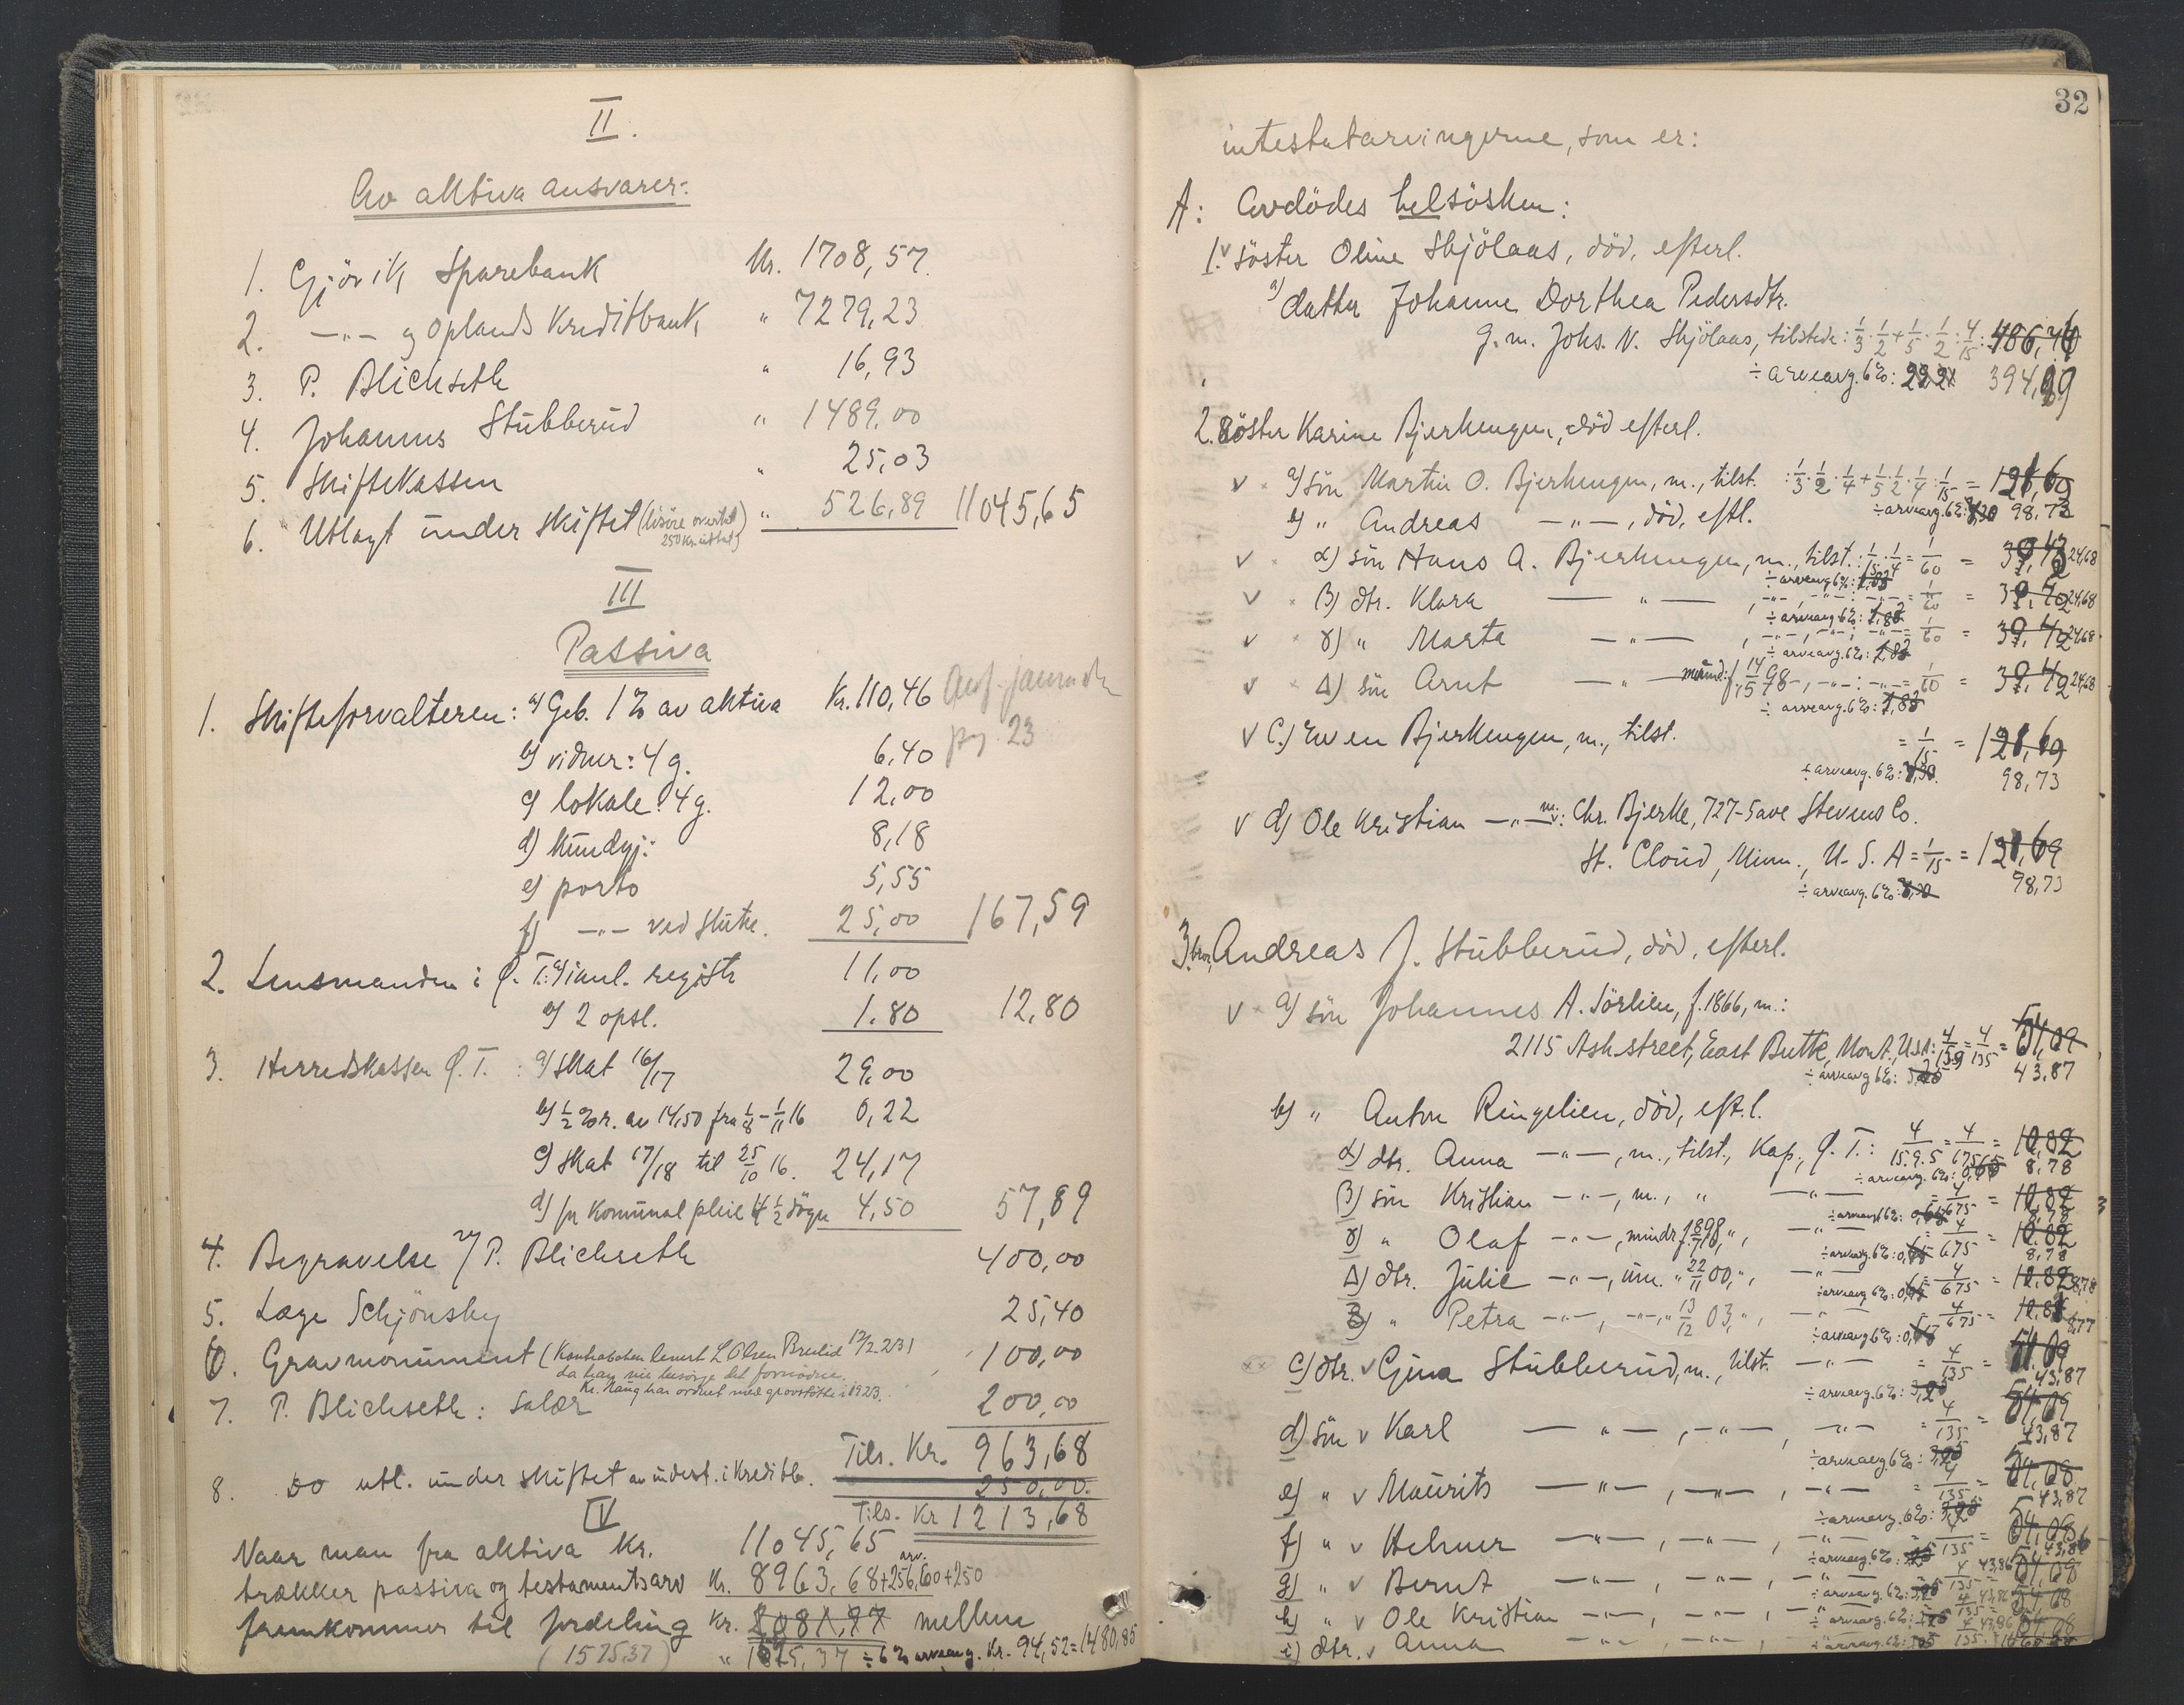 II.
Av aktiva ansvarer:
1. Gjövik Sparebank Kr. 1708,57.
2. —„— og Oplands Kreditbank „ 7279,23
3. P. Blichseth „ 16,93
4. Johannes Stubberud „ 1489,00
5. Skiftekassen „ 25,03
6. Utlagt under skiftet „ 526,89 11045,65
250 Kr.
III
Passiva
1. Skifteforvalteren: a) Geb. 1% av aktiva Kr. 110,46
pag. 23
b) vidner: 4 g. 6,40
c) lokale: 4 g. 12,00
d) kundgj: 8,18
e) porto 5,55
f) —„— ved slutn. 25,00 167,59
2. Lensmanden i Ø. T.: a) registr 11,00
b) 2 opsl. 1.80 12,80
3. Herredskassen Ø. T. : a) Skat 16/17 29,00
b) ½ % r. av 14,50 fra 1/8 - 1/11 16 0,22
c) Skat 17/18 til 25/10 16. 24,17
d) for Komunal pleie 4½ døgn 4,50 57,89
4. Begravelse v/ P. Blichseth 400,00
5. Læge Schjönsby 25,40
6. Gravmonument (Kontraboken levert L. Olsen 100,00
da han vil besörge det fornödne.
Kr. Haug har ordnet med gravstötte i 1923.
7. P. Blichseth: Salær 200,00
Tils. Kr. 963,68
8. Do utl. under skiftet av indest. i Kreditb. 250,00.
Tils. Kr 1213,68
IV
Naar man fra aktiva Kr. 11045,65
arv.
trækker passiva og testamentsarv Kr. 8963,68+256,60+250
fremkommer til fordeling Kr. 2081,97 mellem
(1575,37) „ 1575,37 ÷ 6% arveavg. Kr. 94,52=1480,85
32
intestatarvingerne, som er:
A: Avdödes helsösken:
1. v söster Oline Skjölaas, död, efterl.
a) datter Johanne Dorthea Pedersdtr.
g. m. Johs. N. Skjölaas, tilstede: 1/3·1/2+1/5·1/2: 4/15:
÷ arveavg. 6%: 394,89
2. Söster Karine Bjerkengen, död efterl.
v a) sön Martin O. Bjerkengen, m., tilst. :1/3·1/2·1/4+1/5·1/2·1/4: 1/15 =
÷ arveavg. 6%: 98,73
b) „ Andreas —„—, död, eftl.
v α) sön Hans A. Bjerkengen, m., tilst.: 1/15·1/4 = 1/60 = 24,68
÷ arveavg. 6%:
v β) dtr. Klara —„—, —„—, —„—: —„— = 1/60 = 24,68
÷ arveavg. 6%:
v γ) „ Marta —„—, —„—, —„—: —„— = 1/60 = 24,68
÷ arveavg. 6%:
v Δ) sön Arnt —„— f. 14/5 98 —, —„—: —„— = 1/60 = 24,68
÷ arveavg. 6%:
v c.) Even Bjerkengen, m., tilst. = 1/15 =
÷ arveavg. 6%: 98,73
v d) Ole Kristian —„— m.: Chr. Bjerke, 727-5 ave Stevens Co.
St. Cloud, Minn., U. S. A = 1/15 =
÷ arveavg. 6%: 98,73
3. bror, Andreas J. Stubberud, död, efterl.
v a) sön Johannes A. Sörlien, f. 1866, m.:
2115 Ash street, East Butte, Mont., Usa: 4/15·9 = 4/135 =
÷ arveavg 6%: 43,87
b) „ Anton Ringelien, död, eft.l.
α) dtr. Anna —„—, m., tilst., Kap, Ø. T.: 4/15.9.5 = 4/675 = 10,82
÷ arveavg. 6%: 8,78
β) sön Kristian —„—, m., „ —„— = 4/675 = 10,82
÷ arveavg. 6%: 8,78
γ) „ Olaf —„—, mindr. —„— = 4/675 = 10,82
÷ arveavg. 6%: 8,78
Δ) dtr. Julie —„—, um. „ 22/11 00, „, —„— = 4/675 = 10,82 8,78
÷ arveavg 6%:
„ Petra —„—, —„—, „ 13/12 03, „, —„— = 4/675 = 8,77
÷ arveavg. 6%:
c) dtr. v Gina Stubberud, m., tilst. —„— = 4/135 =
÷ arveavg. 6%: 43,87
d) sön v Karl —„—, —„—, —„— = 4/135 =
÷ arveavg. 6%: 43,87
e) „ v Maurits —„—, —„—, —„— = 4/135 =
÷ arveavg. 6%: 43,87
f) „ v Helmer —„—, —„—, —„— = 4/135 =
÷ arveavg. 6%: 43,86
g) „ v Bernt —„—, —„—, —„— 4/135 = 43,86
÷ arveavg. 6%:
h) „ v Ole Kristian —„—, —„—, —„— 4/135 = 43,86
÷ arveavg. 6%:
i) dtr. v Anna —„—, —„—, —„— 4/135 = 43,86
÷ arveavg. 6%: